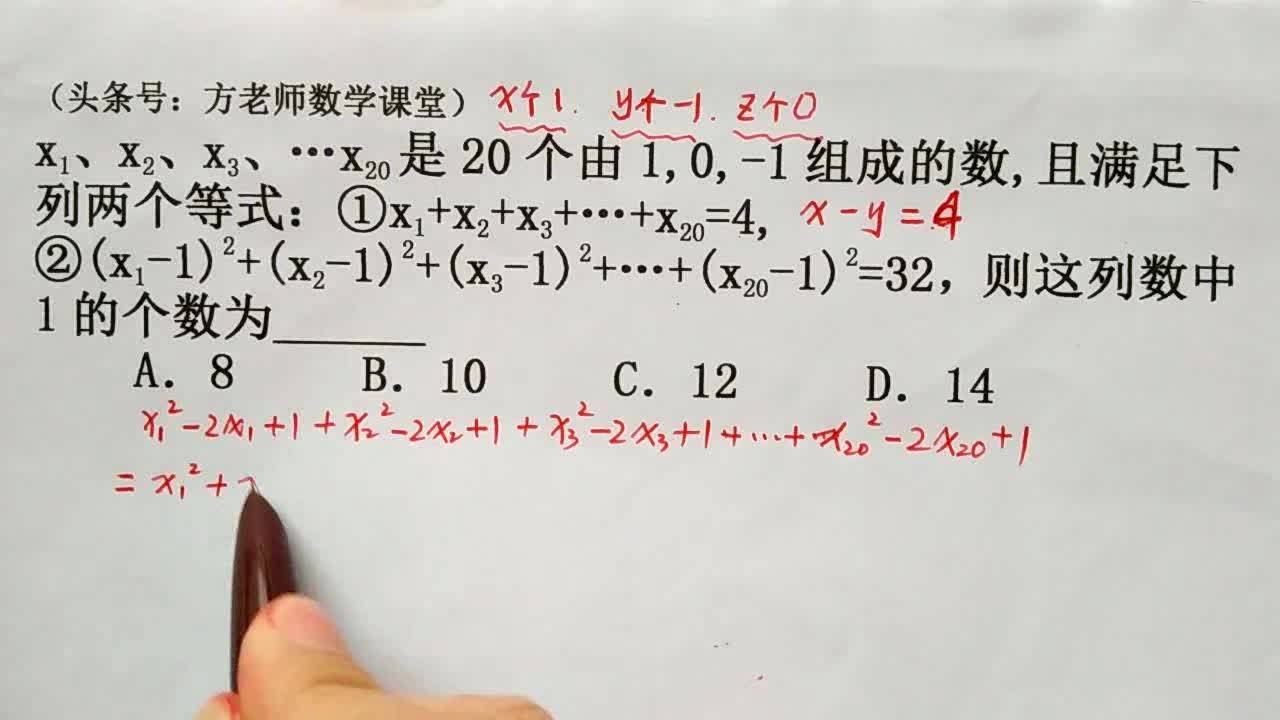 （头条号：方老师数学课堂） x个1. y个-1. z个0
x₁、x₂、x₃、…x₂₀是20个由1,0,-1组成的数,且满足下
列两个等式：①x₁+x₂+x₃+…+x₂₀=4, x-y=4
②(x₁-1)²+(x₂-1)²+(x₃-1)²+…+(x₂₀-1)²=32，则这列数中
1的个数为______
A. 8 B. 10 C. 12 D. 14
x₁²-2x₁+1+x₂²-2x₂+1+x₃²-2x₃+1+…+x₂₀²-2x₂₀+1
=x₁²+